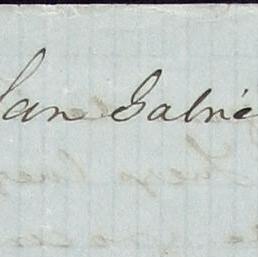 San Gabrie